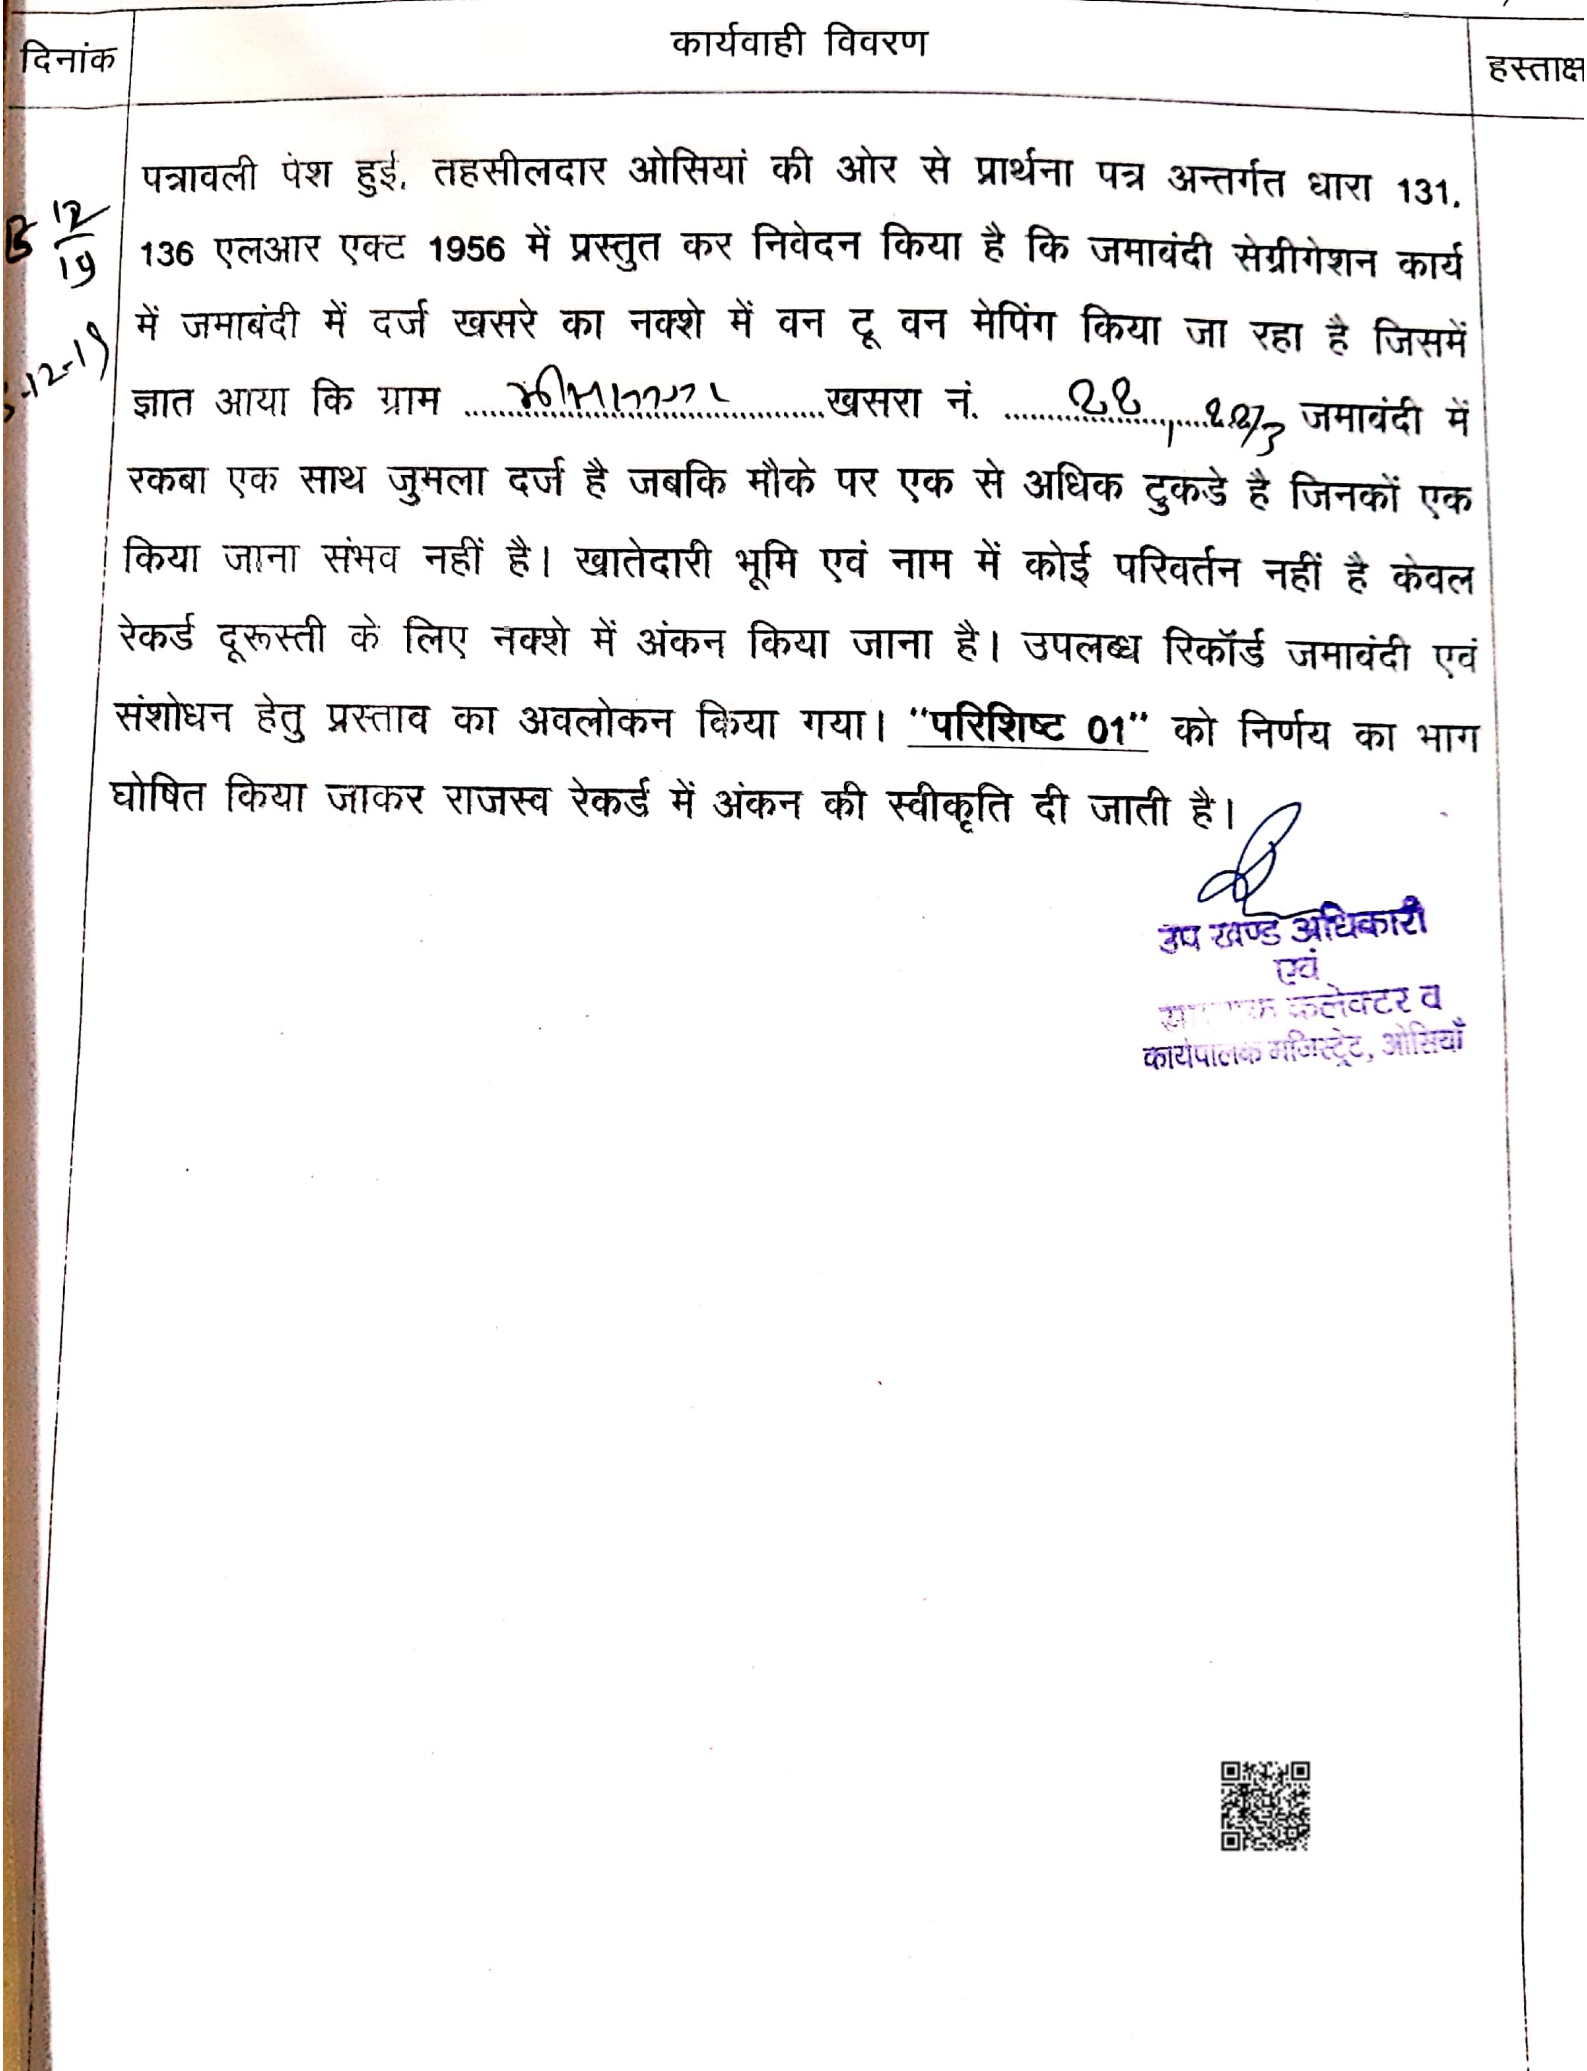 दिनांक
कार्यवाही विवरण
हस्ताक्ष
पत्रावली पेश हुई, तहसीलदार ओसियां की ओर से प्रार्थना पत्र अन्तर्गत धारा 131,
12
19
136 एलआर एक्ट 1956 में प्रस्तुत कर निवेदन किया है कि जमाबंदी सेग्रीगेशन कार्य
में जमाबंदी में दर्ज खसरे का नक्शे में वन टू वन मेपिंग किया जा रहा है जिसमें
-12-19
ज्ञात आया कि ग्राम खसरा नं. जमाबंदी में
रकबा एक साथ जुमला दर्ज है जबकि मौके पर एक से अधिक टुकडे है जिनकों एक
किया जाना संभव नहीं है। खातेदारी भूमि एवं नाम में कोई परिवर्तन नहीं है केवल
रेकर्ड दूरूस्ती के लिए नक्शे में अंकन किया जाना है। उपलब्ध रिकॉर्ड जमाबंदी एवं
संशोधन हेतु प्रस्ताव का अवलोकन किया गया। "परिशिष्ट 01" को निर्णय का भाग
घोषित किया जाकर राजस्व रेकर्ड में अंकन की स्वीकृति दी जाती है।
उप खण्ड अधिकारी
एवं
कलेक्टर व
कार्यपालक मजिस्ट्रेट, ओसियाँ